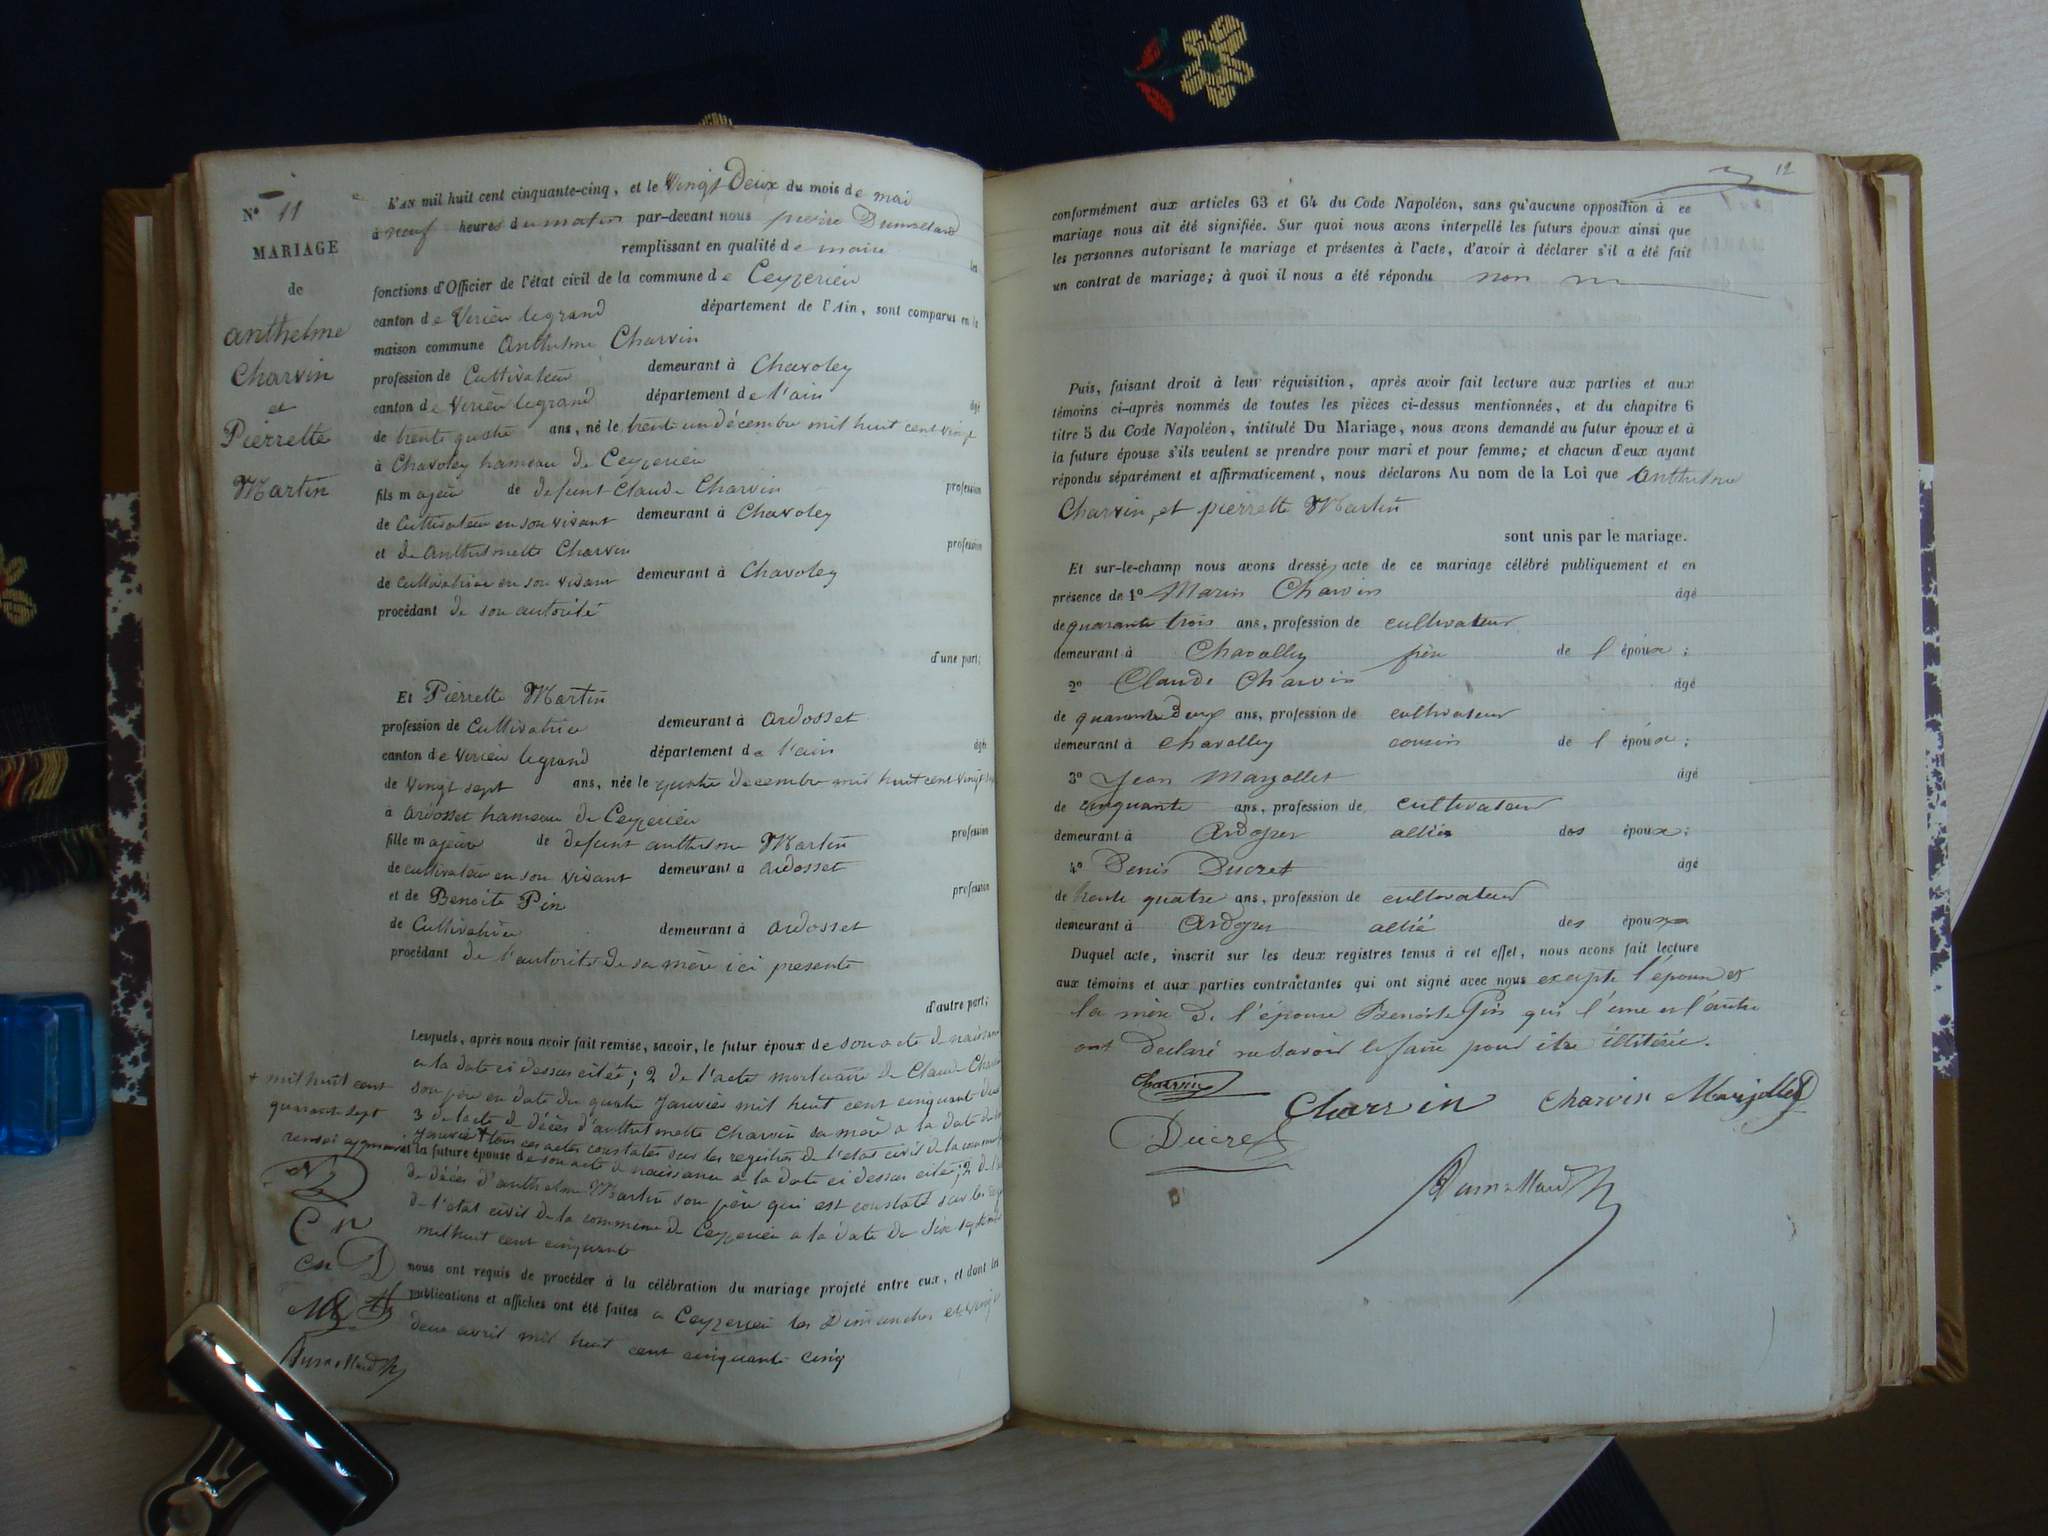 N° 11
MARIAGE
de
anthelme
Charvin
et
Pierrette
Martin
L'AN mil huit cent cinquante-cinq, et le Vingt Deux du mois de mai
à neuf heures du matin par-devant nous pierre Dumollard
remplissant en qualité de maire les
fonctions d'Officier de l'état civil de la commune de Ceyzerieu
canton de Virieu legrand département de l'Ain, sont comparus en la
maison commune Anthelme Charvin
profession de Cultivateur demeurant à Chavoley
canton de Virieu legrand département de l'ain âgé
de trente quatre ans, né le trente un décembre mil huit cent vingt
à Chavoley hameau de Ceyzerieu
fils majeur de defunt Claude Charvin profession
de Cultivateur en son vivant demeurant à Chavoley
et de Anthelmette Charvin profession
de cultivatrice en son vivant demeurant à Chavoley
procédant de son autorité
d'une part;
Et Pierrette Martin
profession de Cultivatrice demeurant à ardosset
canton de Virieu legrand département de l'ain âgée
de Vingt sept ans, née le quatre decembre mil huit cent vingt
à ardosset hameau de Ceyzerieu
fille majeure de defunt anthelme Martin profession
de cultivateur en son vivant demeurant à ardosset
et de Benoite Pin profession
de Cultivatrice demeurant à ardosset
procédant de l'autorité de sa mère ici presente
d'autre part;
Lesquels, après nous avoir fait remise, savoir, le futur époux de son acte de naissance
a la date ci dessus citée; 2 de l'acte mortuaire de Claude Charvin
son père en date du quatre Janvier mil huit cent cinquante deux
3 de l'acte de décès d'anthelmette Charvin sa mère a la date du
Janvier + tous ces actes constatés sur les registres de l'etat civil de la commune
et la future épouse de son acte de naissance a la date ci dessus citée; 2 de l'
de décès d'anthelme Martin son père qui est constaté sur les
de l'etat civil de la commune de Ceyzerieu a la date du Six septembre
mil huit cent cinquante
nous ont requis de procéder à la célébration du mariage projeté entre eux, et dont les
publications et affiches ont été faites a Ceyzerieu les Dimanches et vingt
deux avril mil huit cent cinquante cinq
+ mil huit cent
quarante sept
renvoi approuvé
C M
Dumollard
12
conformément aux articles 63 et 64 du Code Napoléon, sans qu'aucune opposition à ce
mariage nous ait été signifiée. Sur quoi nous avons interpellé les futurs époux ainsi que
les personnes autorisant le mariage et présentes à l'acte, d'avoir à déclarer s'il a été fait
un contrat de mariage; à quoi il nous a été répondu non
Puis, faisant droit à leur réquisition, après avoir fait lecture aux parties et aux
témoins ci-après nommés de toutes les pièces ci-dessus mentionnées, et du chapitre 6
titre 5 du Code Napoléon, intitulé Du Mariage, nous avons demandé au futur époux et à
la future épouse s'ils veulent se prendre pour mari et pour femme; et chacun d'eux ayant
répondu séparément et affirmaticement, nous déclarons Au nom de la Loi que Anthelme
Charvin, et pierrette Martin
sont unis par le mariage.
Et sur-le-champ nous avons dressé acte de ce mariage célébré publiquement et en
présence de 1° Marin Charvin âgé
de quarante trois ans, profession de cultivateur
demeurant à Chavolley frère de l époux;
2° Claude Charvin âgé
de quarante Deux ans, profession de cultivateur
demeurant à Chavolley cousin de l époux;
3° Jean Marjollet âgé
de cinquante ans, profession de cultivateur
demeurant à allié des époux;
4° Denis Ducret âgé
de trente quatre ans, profession de cultivateur
demeurant à allié des époux
Duquel acte, inscrit sur les deux registres tenus à cet effet, nous avons fait lecture
aux témoins et aux parties contractantes qui ont signé avec nous excepte l'épouse et
la mère de l'épouse Benoite Pin qui l'une et l'autre
ont declaré ne savoir le faire pour être illitérée.
Charvin Charvin Charvin Marjollet
Ducret
Dumollard